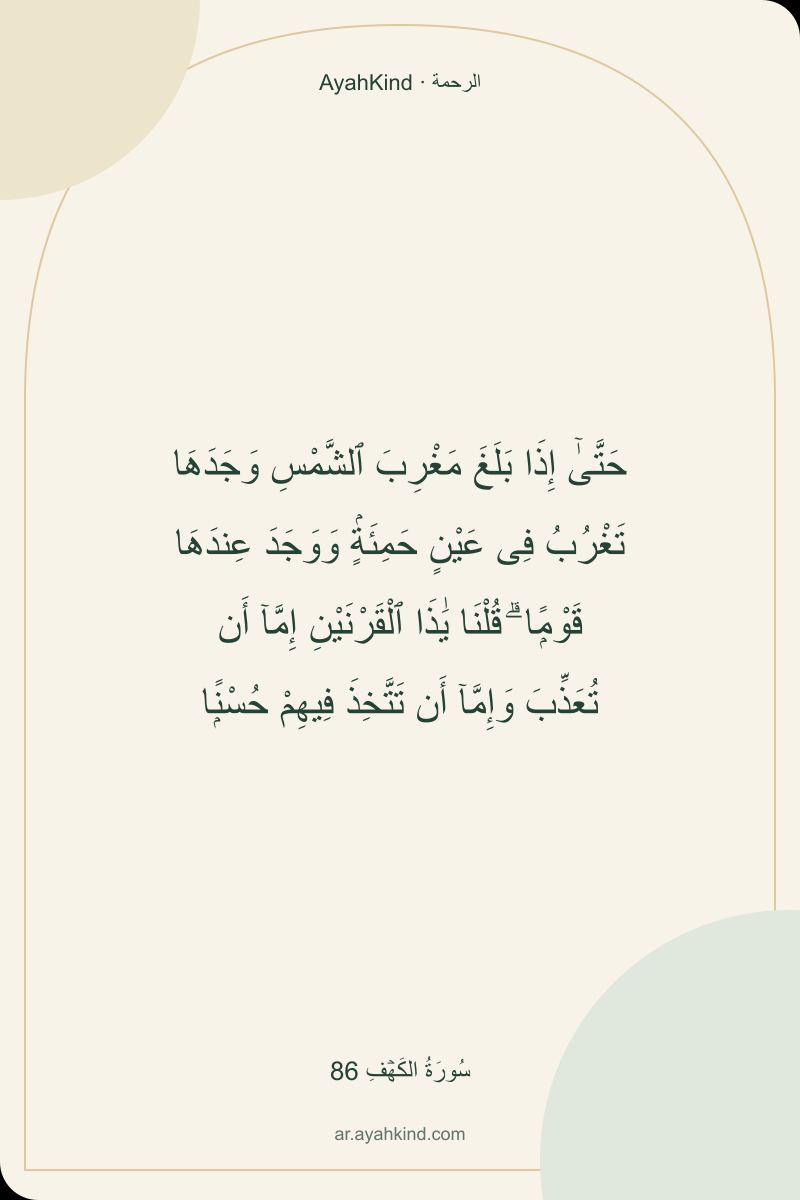 AyahKind · الرحمة
حَتَّىٰٓ إِذَا بَلَغَ مَغْرِبَ ٱلشَّمْسِ وَجَدَهَا
تَغْرُبُ فِى عَيْنٍ حَمِئَةٍۢ وَوَجَدَ عِندَهَا
قَوْمًۭا ۗ قُلْنَا يَٰذَا ٱلْقَرْنَيْنِ إِمَّآ أَن
تُعَذِّبَ وَإِمَّآ أَن تَتَّخِذَ فِيهِمْ حُسْنًۭا
سُورَةُ الكَهۡفِ 86
ar.ayahkind.com